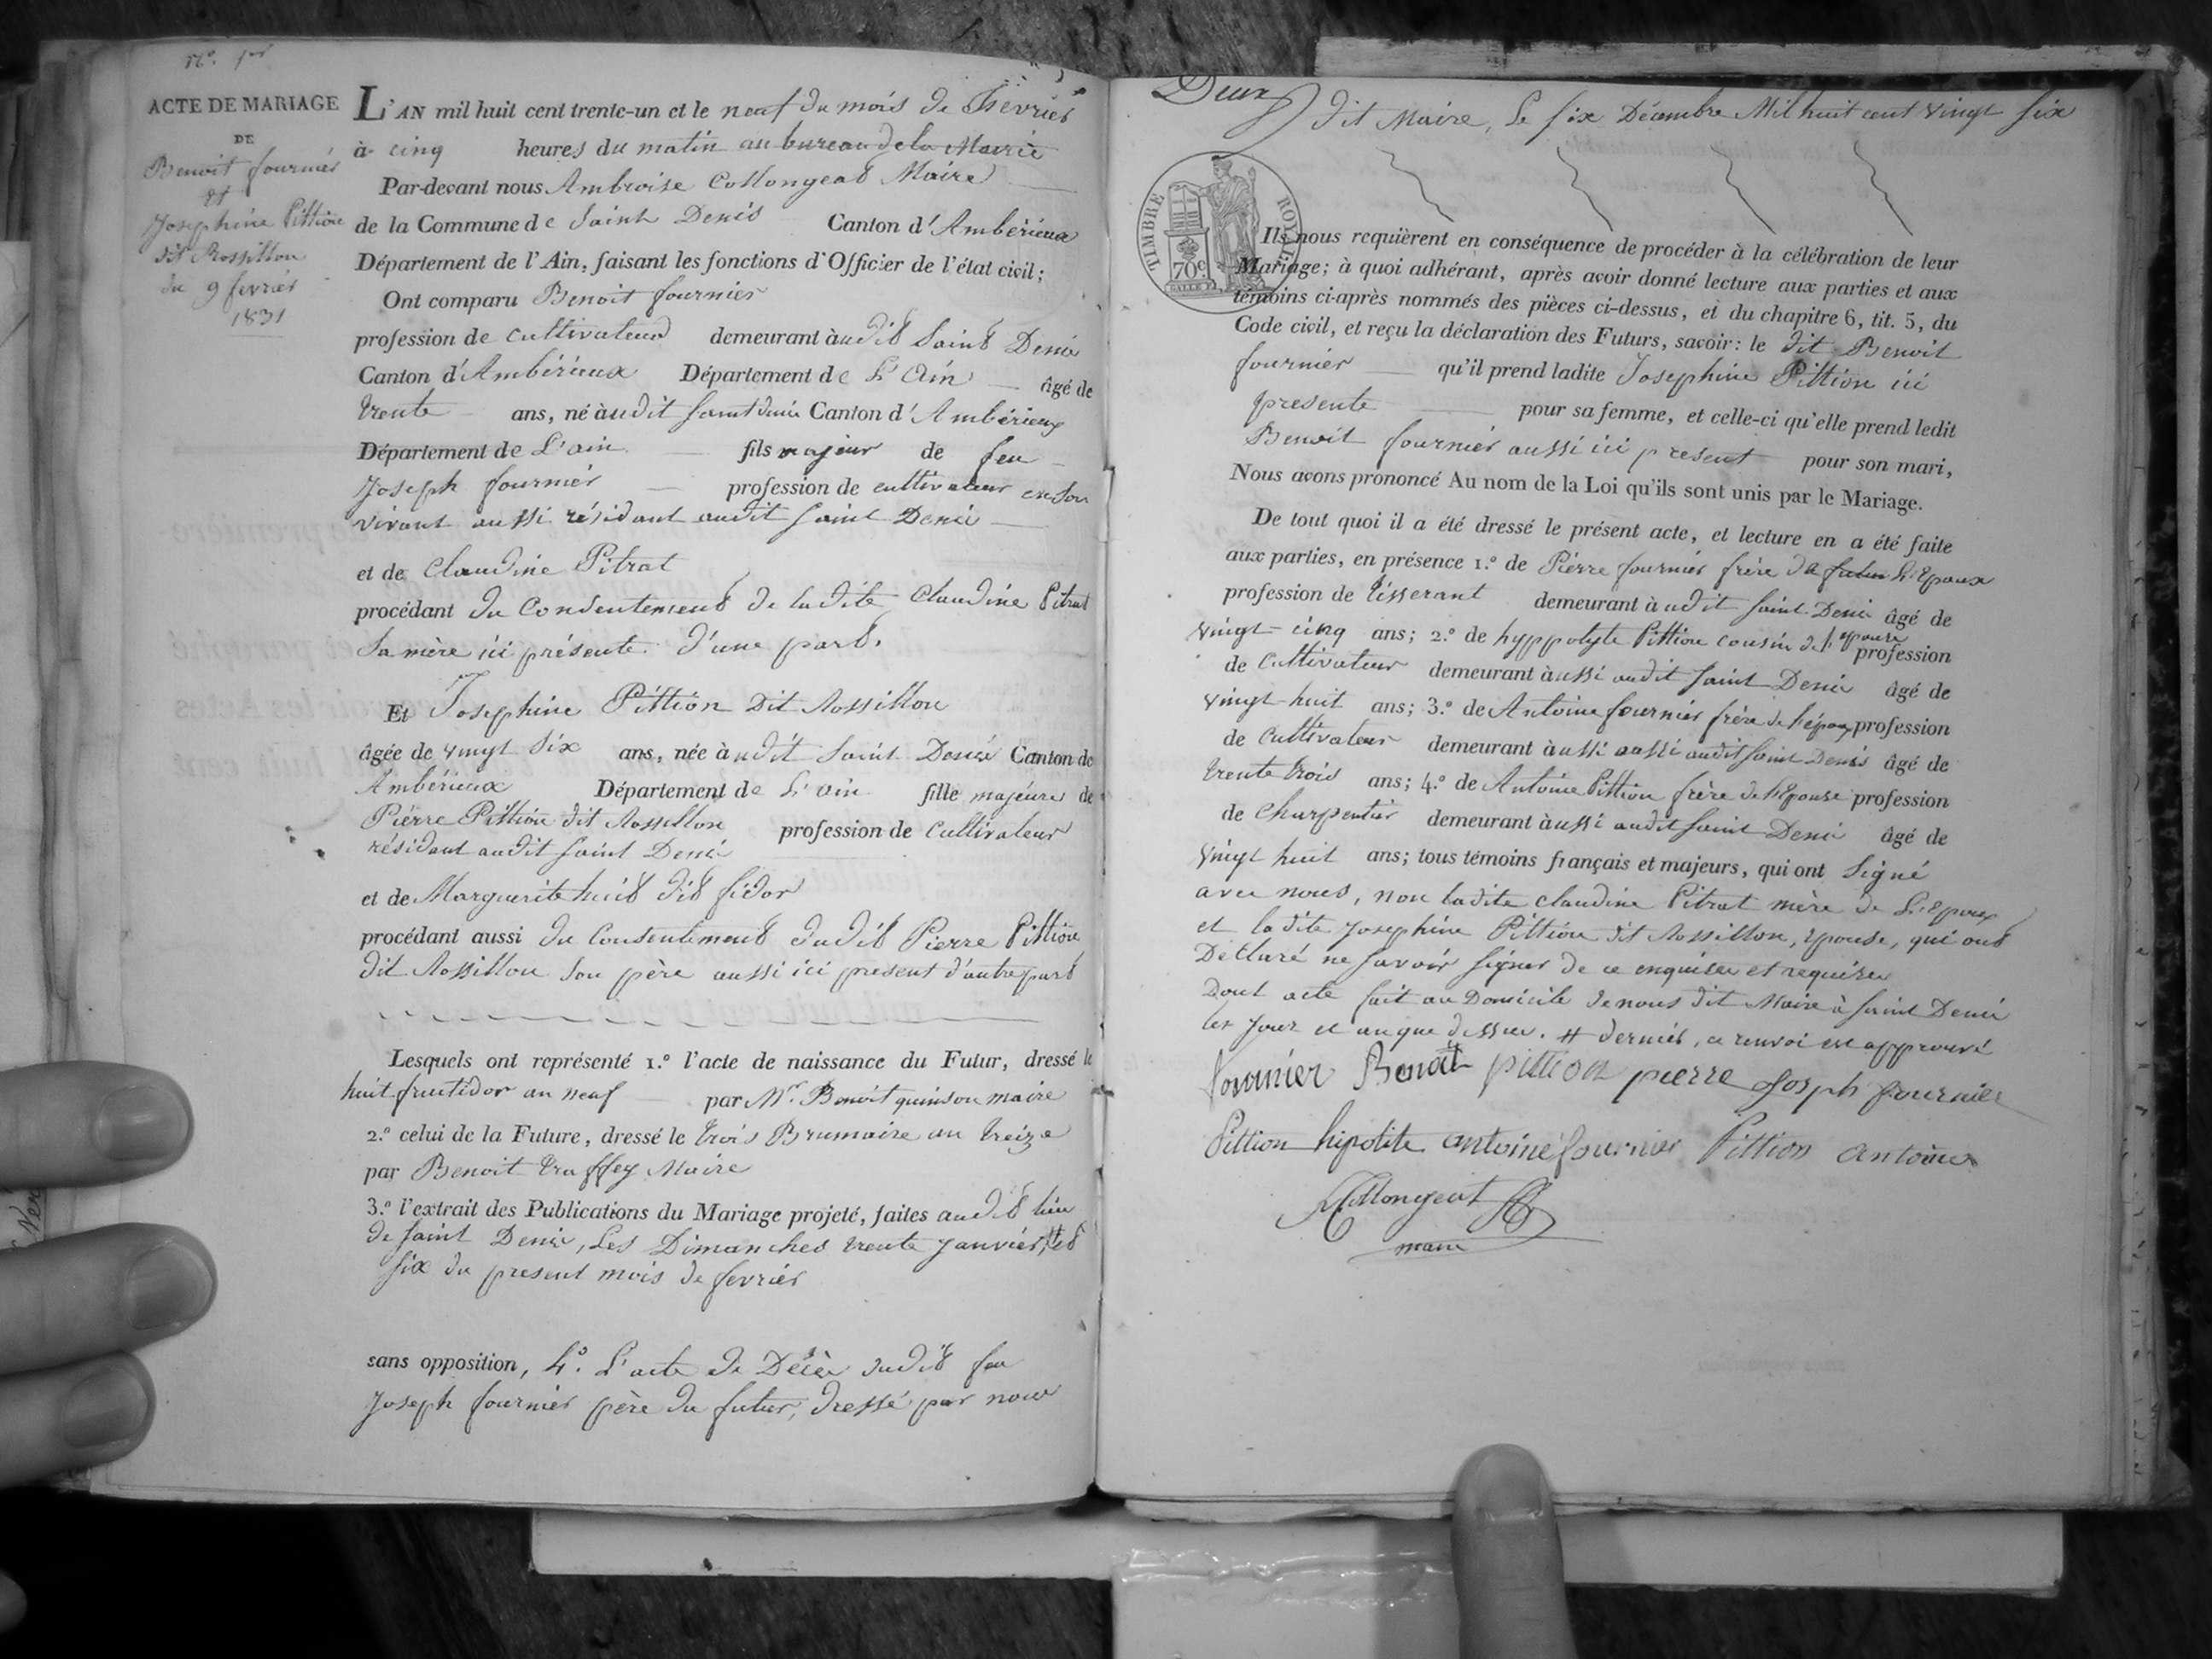 N.º 1er
ACTE DE MARIAGE
DE
Benoit fournier
et
Josephine Pittion
dit Rossillon
du 9 fevrier
1831
L'AN mil huit cent trente-un et le neuf du mois de Fevrier
à cinq heures du matin au bureau de la Mairie
Par-devant nous Ambroise Collongeat Maire
de la Commune de Saint Denis Canton d'Ambérieux
Département de l'Ain, faisant les fonctions d'Officier de l'état civil;
Ont comparu Benoit fournier
profession de cultivateur demeurant àudit Saint Denis
Canton d'Ambérieux Département de L'Ain âgé de
trente ans, né àudit Saint denis Canton d'Ambérieux
Département de L'ain fils majeur de feu
Joseph fournier profession de cultivateur en son
vivant aussi résidant audit Saint Denis
et de Claudine Pitrat
procédant du Consentement de ladite Claudine Pitrat
Sa mère ici présente d'une part.
Et Josephine Pittion dit Rossillon
âgée de vingt Six ans, née àudit Saint Denis Canton de
Ambérieux Département de L'ain fille majeure de
Pierre Pittion dit Rossillon profession de Cultivateur
résidant audit Saint Denis
et de Marguerite huit dit fidor
procédant aussi du Consentement dudit Pierre Pittion
dit Rossillon Son père aussi ici present d'autre part
Lesquels ont représenté 1.º l'acte de naissance du Futur, dressé le
huit fructidor an neuf par Mr. Benoit quinson maire
2.º celui de la Future, dressé le trois Brumaire an treize
par Benoit Truffey Maire
3.º l'extrait des Publications du Mariage projeté, faites audit lieu
de Saint Denis, Les Dimanches trente Janvier, # et
Six du present mois de fevrier
sans opposition, 4.º L'acte de Décès dudit feu
Joseph fournier père du futur, dressé par nous
Deux
dit Maire, Le Six Décembre Mil huit cent vingt Six
TIMBRE ROYAL
70c
Ils nous requièrent en conséquence de procéder à la célébration de leur
Mariage; à quoi adhérant, après avoir donné lecture aux parties et aux
témoins ci-après nommés des pièces ci-dessus, et du chapitre 6, tit. 5, du
Code civil, et reçu la déclaration des Futurs, savoir: le dit Benoit
fournier qu'il prend ladite Josephine Pittion ici
presente pour sa femme, et celle-ci qu'elle prend ledit
Benoit fournier aussi ici present pour son mari,
Nous avons prononcé Au nom de la Loi qu'ils sont unis par le Mariage.
De tout quoi il a été dressé le présent acte, et lecture en a été faite
aux parties, en présence 1.º de Pierre fournier frère de futur L'Epoux
profession de tisserant demeurant àudit Saint Denis âgé de
vingt-cinq ans; 2.º de hyppolyte Pittion cousin de l'epouse profession
de Cultivateur demeurant àussi audit Saint Denis âgé de
vingt huit ans; 3.º de Antoine fournier frère de l'époux profession
de Cultivateur demeurant àussi aussi audit Saint Denis âgé de
trente trois ans; 4.º de Antoine Pittion frère de L'Epouse profession
de Charpentier demeurant àussi audit Saint Denis âgé de
vingt huit ans; tous témoins français et majeurs, qui ont Signé
avec nous, non ladite Claudine Pitrat mère de L'Epoux
et ladite Josephine Pittion dit Rossillon, épouse, qui ont
Déclaré ne savoir signer de ce enquises et requises
Dont acte fait au Domicile de nous dit Maire à Saint Denis
les Jour et an que dessus. # dernier, ce renvoi est approuvé
fournier Benoit pittion pierre Joseph fournier
Pittion hipolite antoine fournier Pittion antoine
Collongeat
maire